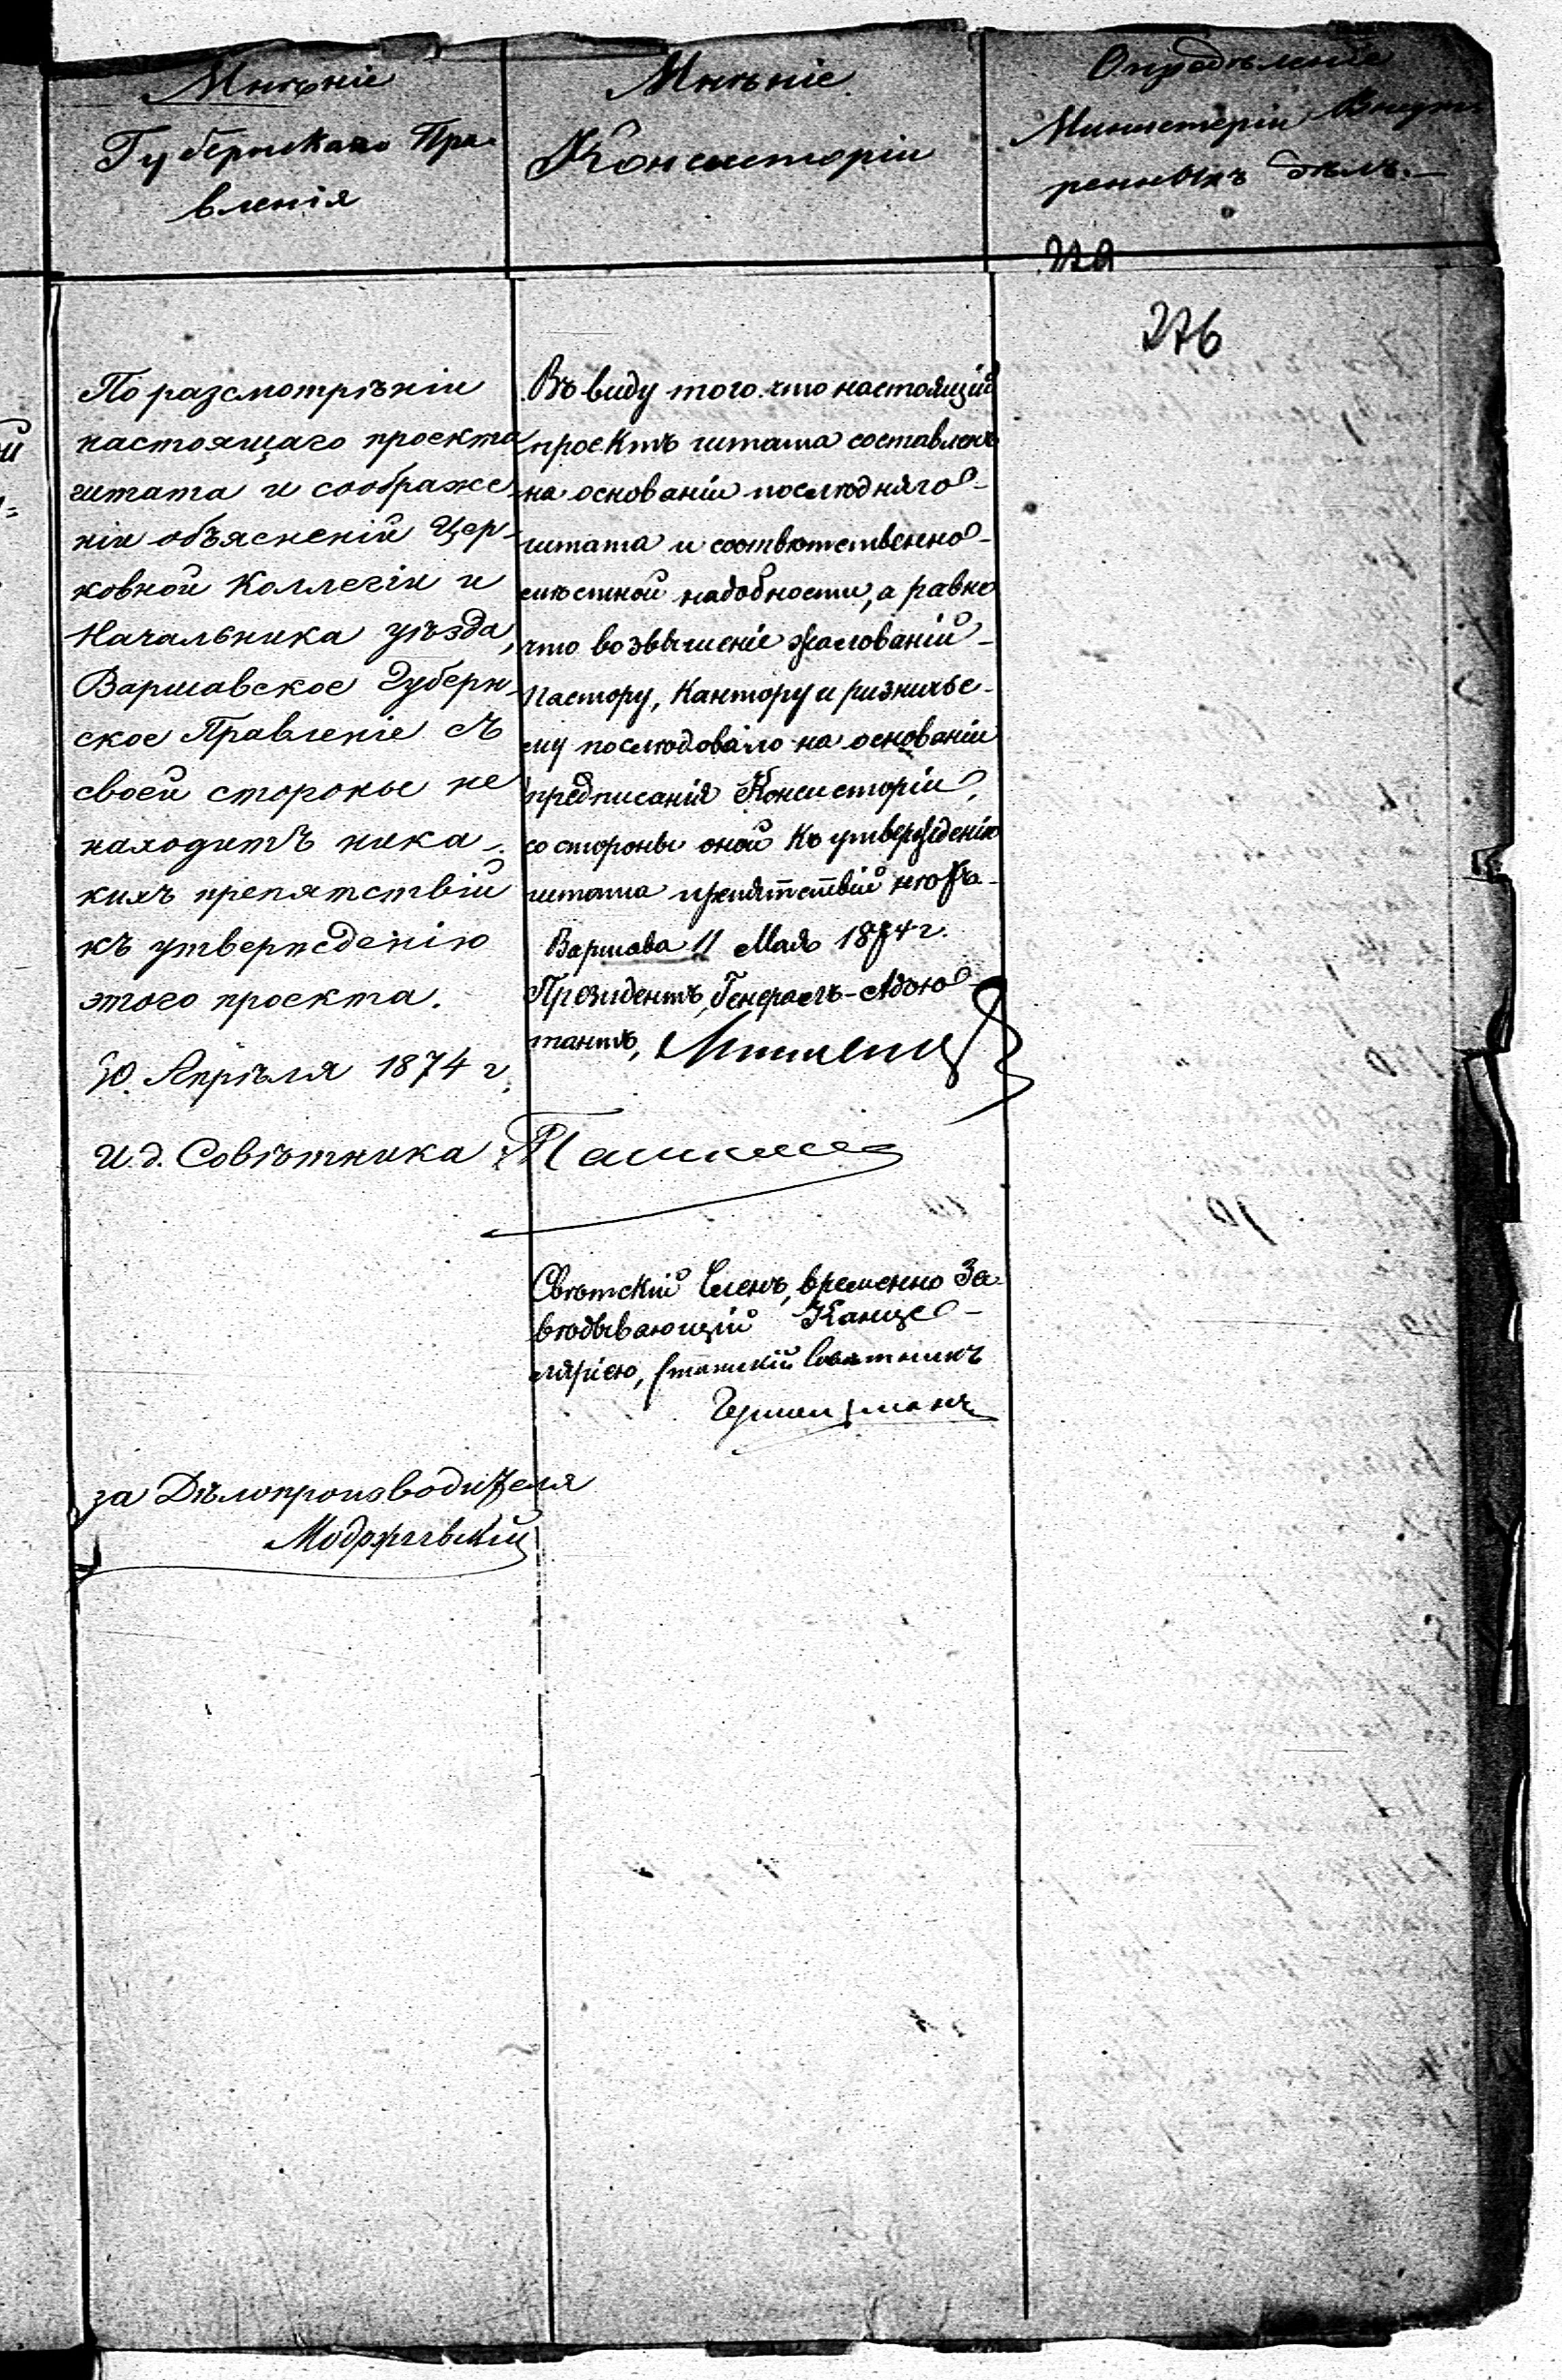 Мнѣніе
Губернскаго Пра-
вленія
Мнѣніе
Консисторіи
Опредѣленіе
Министеріи Внут-
реннихъ дѣлъ.
276
По разсмотрѣніи
настоящаго проекта
штата и соображе-
ніи объясненій Цер-
ковной Коллегіи и
Начальника уѣзда,
Варшавское Губерн-
ское Правленіе съ
своей стороны не
находитъ ника-
кихъ препятствій
къ утвержденію
этого проекта.
30 Апрѣля 1874 г.
И. д. Совѣтника
за Дѣлопроизводителя
Модржевскій
Въ виду того что настоящій
проектъ штата составленъ
на основаніи послѣдняго
штата и соотвѣтственно
мѣстной надобности, а равно
что возвышеніе жалованій
Пастору, Кантору и ризниче-
му послѣдовало на основаніи
предписанія Консисторіи,
со стороны оной къ утвержденію
штата препятствій нѣтъ.
Варшава 11 Мая 1874 г.
Президентъ, Генералъ-Адъю-
тантъ,
Свѣтскій Членъ, временно За-
вѣдывающій Канце-
ляріею, Статскій Совѣтникъ